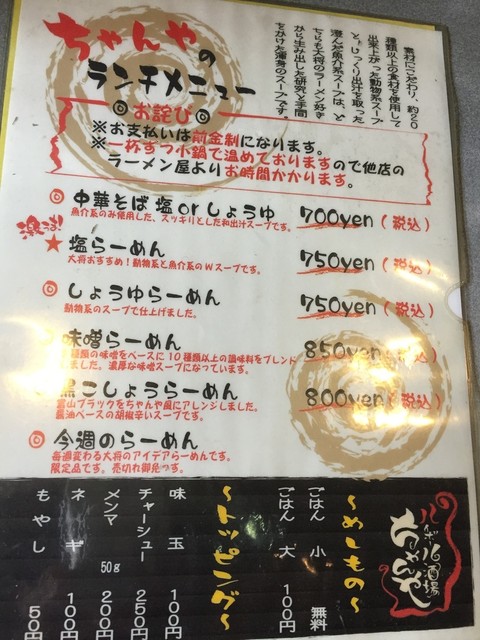 ちゃんやの
ランチメニュー
素材にこだわり、約20
種類以上の食材を使用して
出来上がった動物系スープ
と、じっくり出汁を取った
澄んだ魚介系スープは、ど
ちらも大将のラーメン好き
から生み出した研究と手間
をかけた渾身のスープです。
お詫び
※お支払いは前金制になります。
※一杯ずつ小鍋で温めておりますので他店の
ラーメン屋よりお時間かかります。
中華そば 塩 or しょうゆ 700yen (税込)
魚介系のみ使用した、スッキリとした和出汁スープです。
塩らーめん 750yen (税込)
大将おすすめ!動物系と魚介系のWスープです。
しょうゆらーめん 750yen (税込)
動物系のスープで仕上げました。
味噌らーめん 850yen (税込)
種類の味噌をベースに10種類以上の調味料をブレンド
しました。濃厚な味噌スープになっています。
黒こしょうらーめん 800yen (税込)
富山ブラックをちゃんや風にアレンジしました。
醤油ベースの胡椒辛いスープです。
今週のらーめん
毎週変わる大将のアイデアらーめんです。
限定品です。売切れ御免っす。
酒場
ちゃんや
~めしもの~
ごはん 小 無料
ごはん 大 100円
~トッピング~
味玉 100円
チャーシュー 250円
メンマ 50g 200円
ネギ 100円
もやし 50円